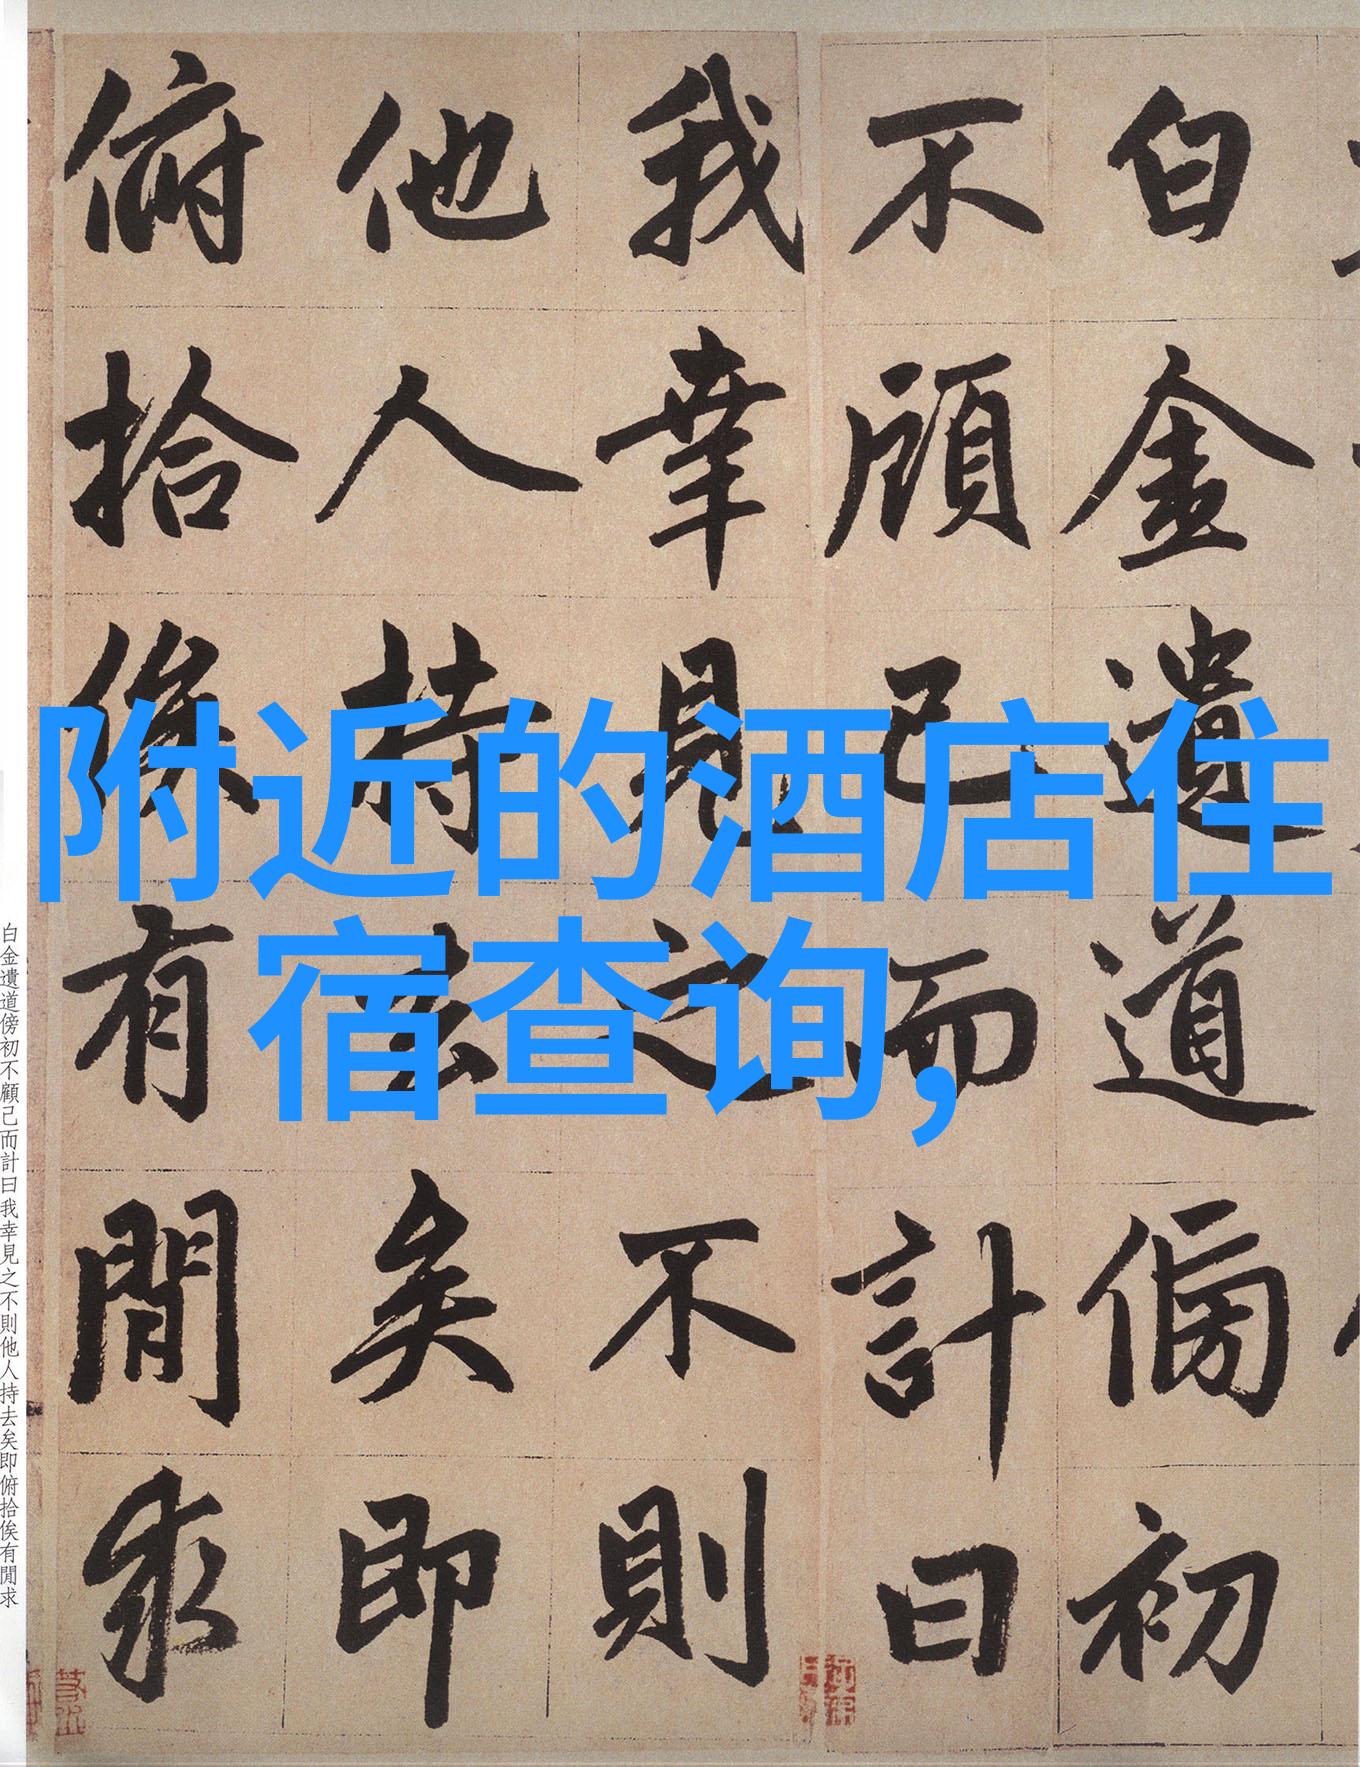 附近的酒店住
宿查询,
白金遺道傍初
不顧己而計曰
我幸見之不則
他人持去矣即
俯拾俟有閒求
白金遺道傍初不顧己而計曰我幸見之不則他人持去矣即俯拾俟有閒求